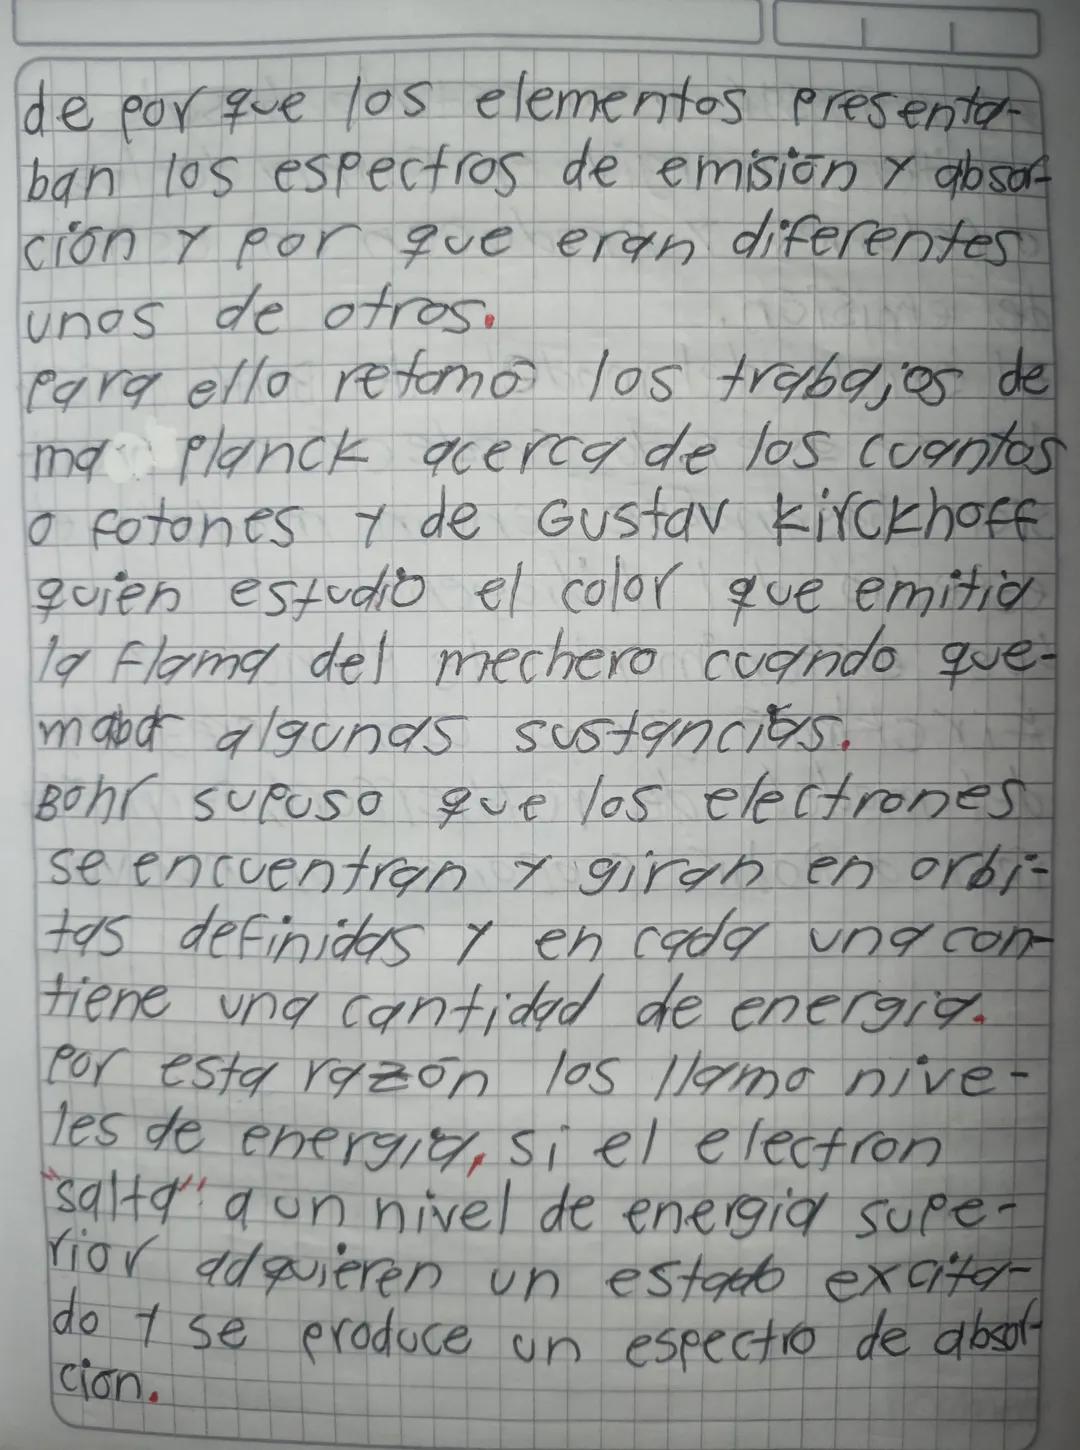 de por que los elementos presenta-
ban los espectros de emisión y absor-
ción y por que eran diferentes
unos de otros.
Para ello retomó los trabajos de
ma planck acerca de los cuantos
o fotones y de Gustav Kirckhoff
quien estudio el color que emitia
la flama del mechero cuando que-
maba algunas sustancias.
Bohr supuso que los electrones
se encuentran y giran en orbi-
tas definidas y en cada una con-
tiene una cantidad de energia.
Por esta razón los llamo nive-
les de energia, si el electron
"salta" a un nivel de energia supe-
rior adquieren un estado excita-
do y se produce un espectro de absor-
cion.